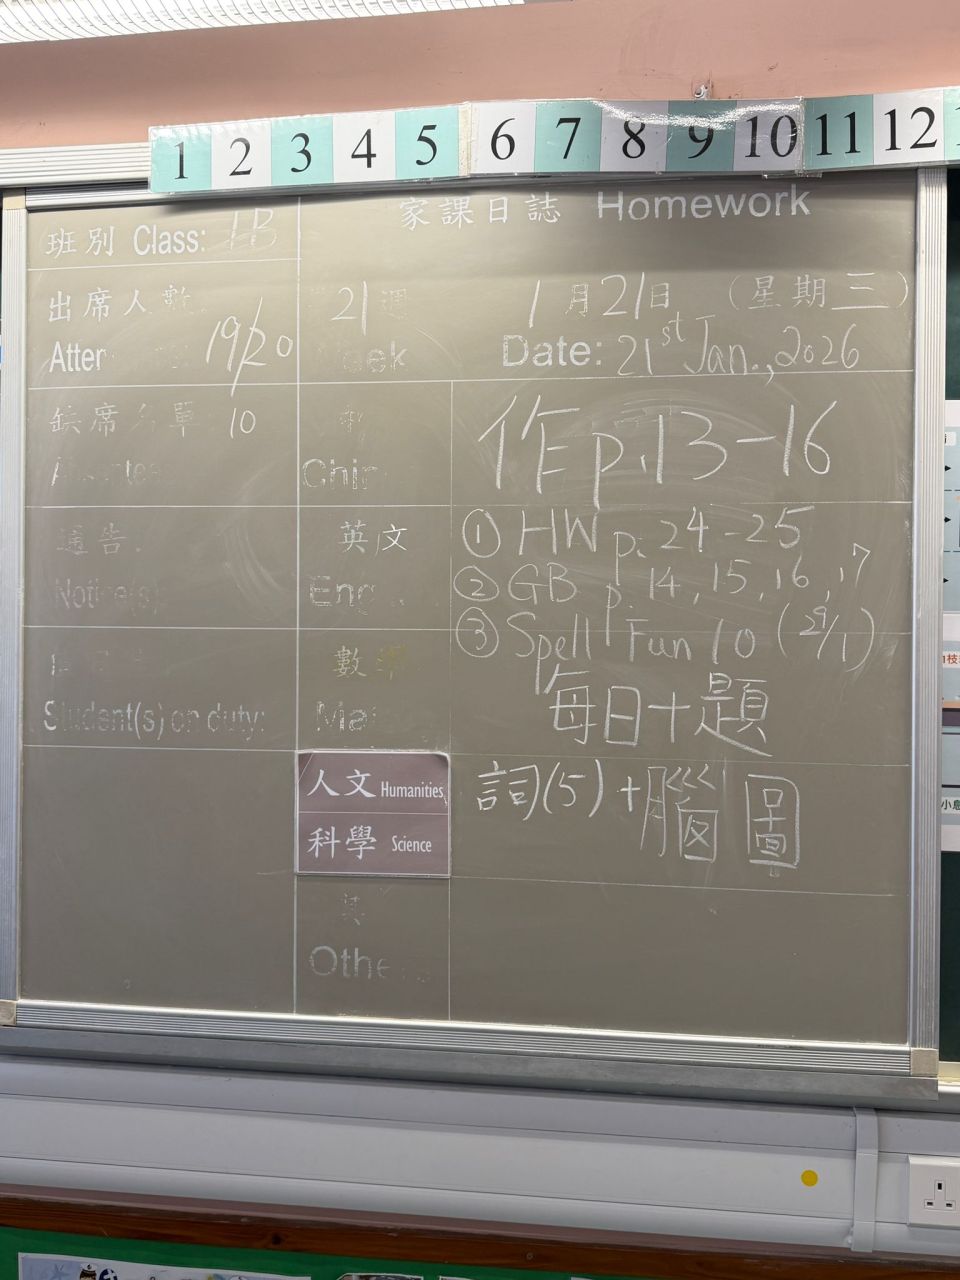 1 2 3 4 5 6 7 8 9 10 11 12
家課日誌 Homework
班別 Class: 1B
出席人數
Atter
19/20
21 週
eek
1月21日 (星期三)
Date: 21st Jan., 2026
缺席名單 10
Chin
作 p.13-16
通告
Notice(s)
英文
Eng
① HW p. 24-25
② GB p. 14, 15, 16, 17
③ Spell Fun 10 (29/1)
Student(s) on duty:
數學
Ma
每日十題
人文 Humanities
科學 Science
詞(5)+腦圖
其
Othe